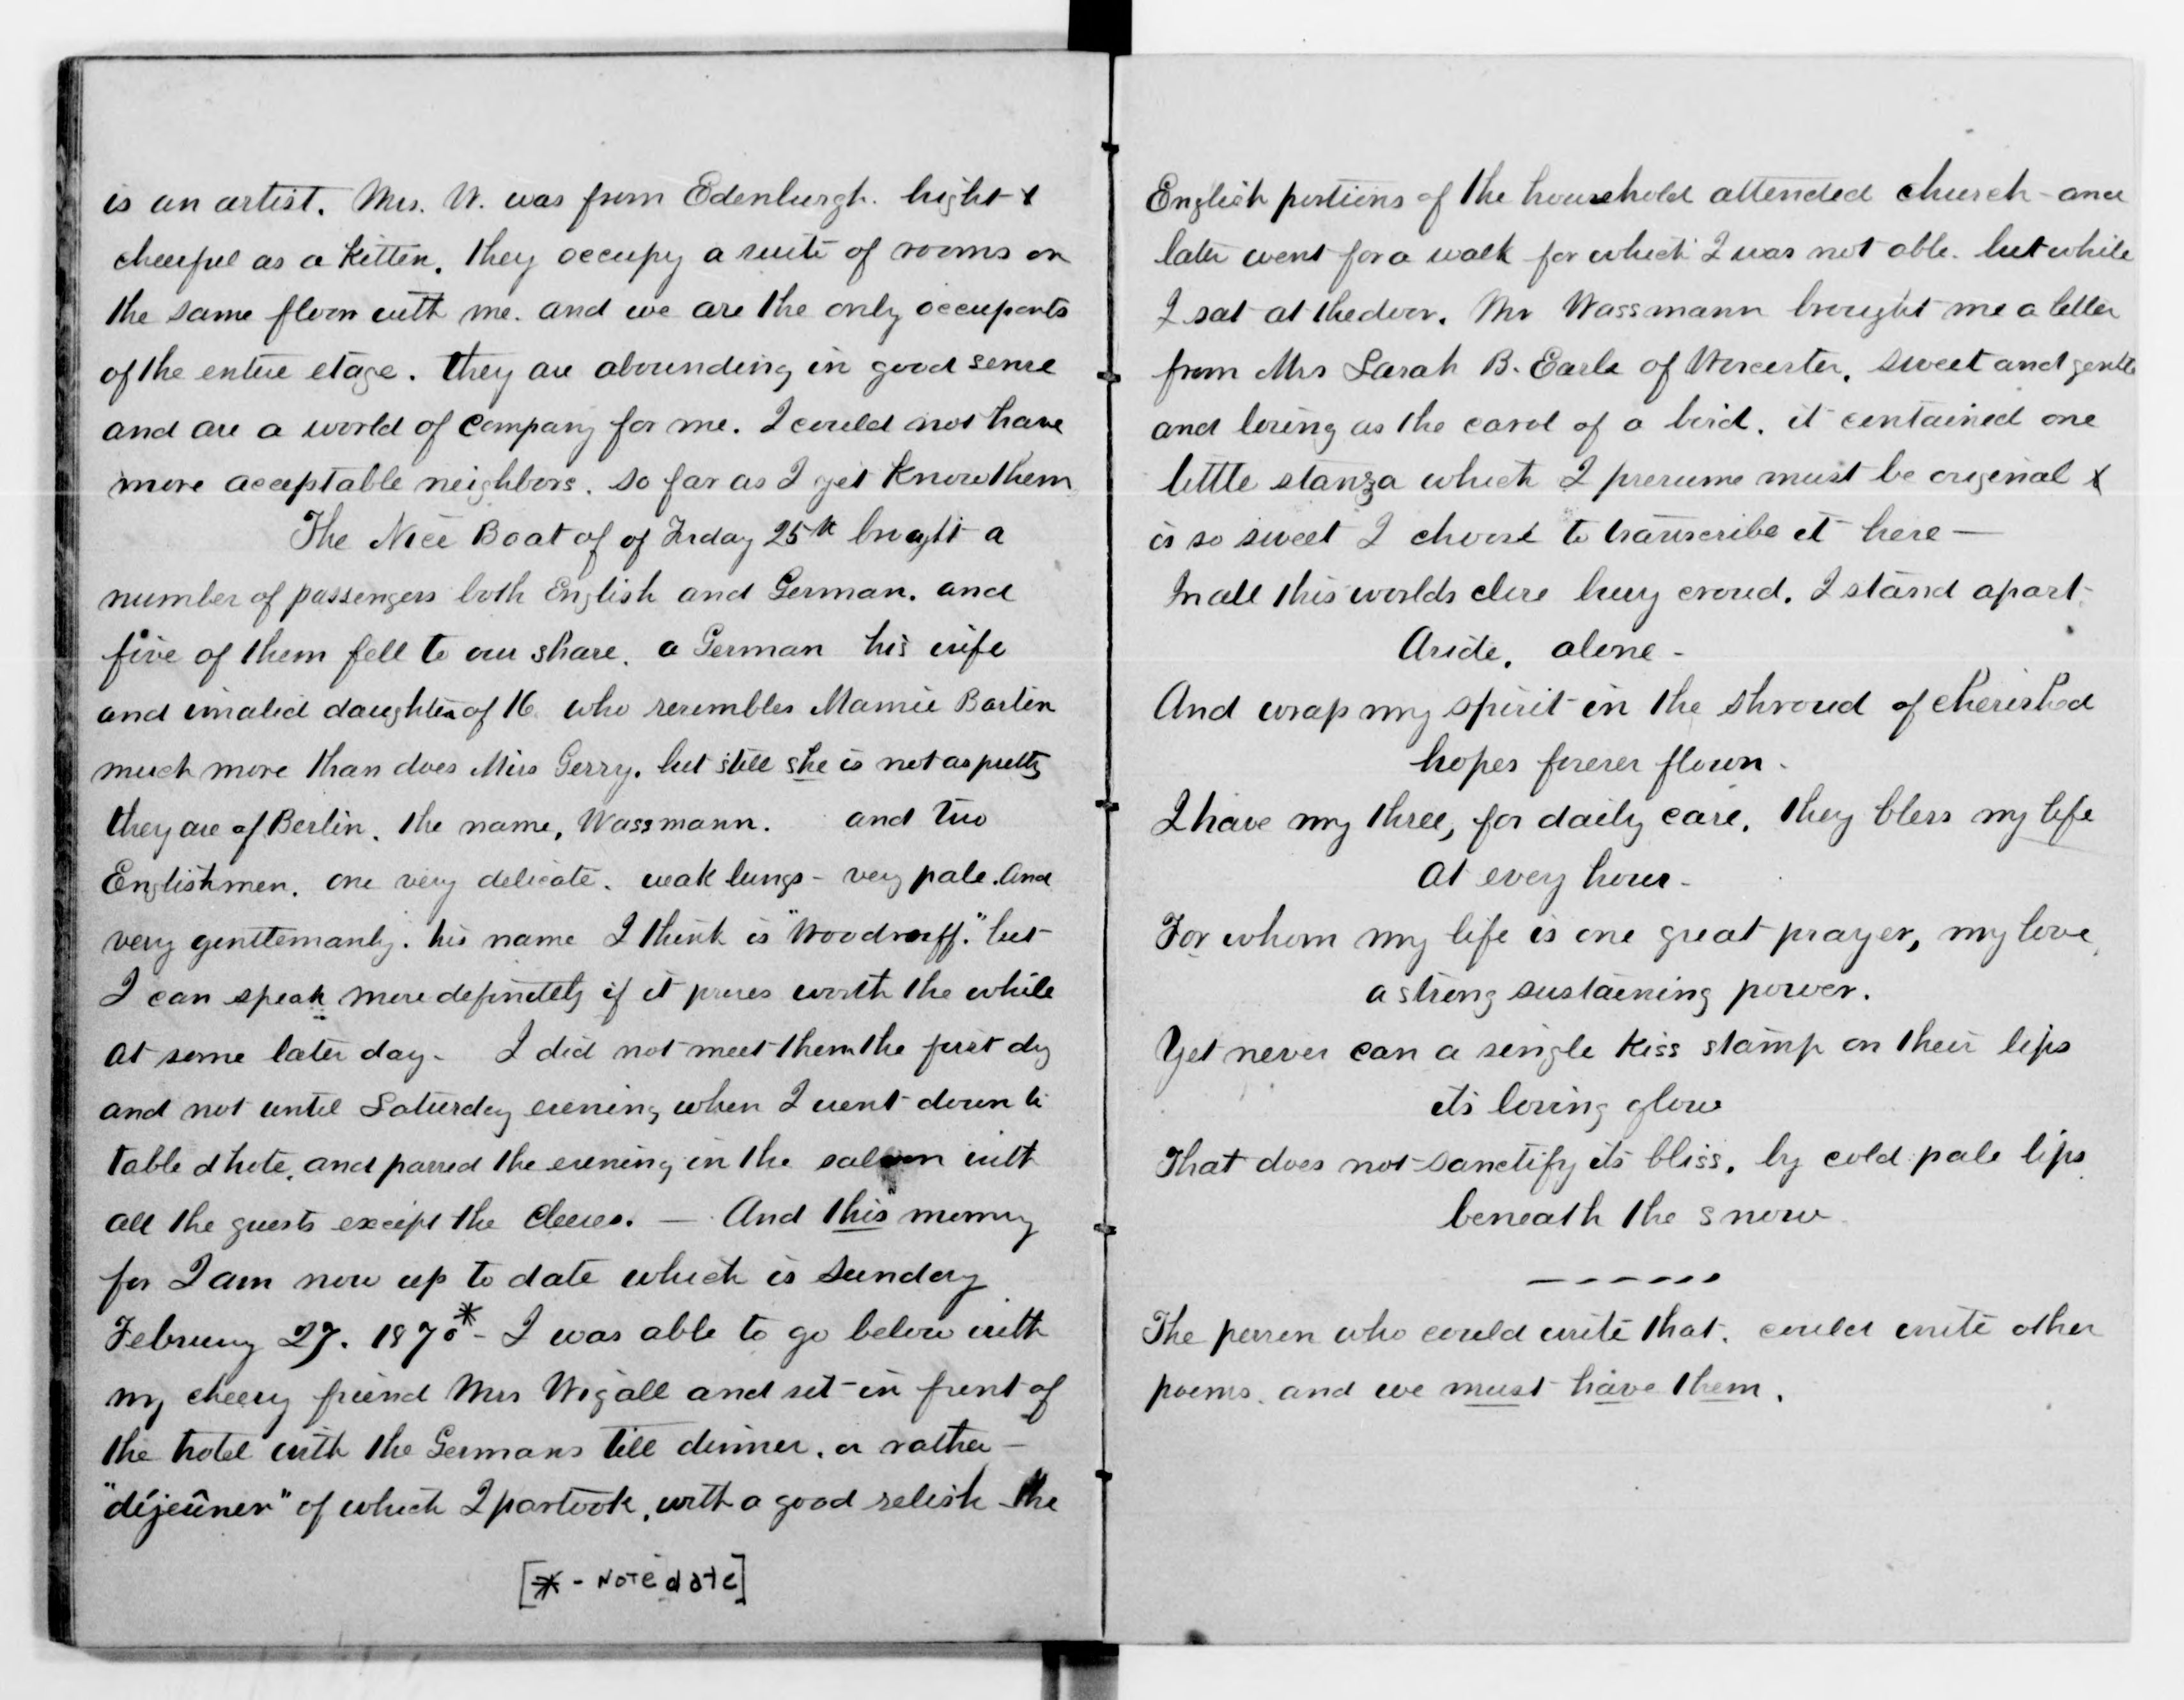 is an artist. Mrs. W. was from Edenburgh. bright &
cheerful as a kitten. they occupy a suite of rooms on
the same floor with me. and we are the only occupants
of the entire etage. they are abounding in good sense
and are a world of company for me. I could not have
more acceptable neighbors. so far as I yet know them
The Nice Boat of of Friday 25th brought a
number of passengers both English and German. and
five of them fell to our share. a German his wife
and invalid daughter of 16. who resembles Mamie Barton
much more than does Miss Gerry. but still she is not as pretty
they are of Berlin. the name, Wassmann. and two
Englishmen. one very delicate. weak lungs - very pale. and
very gentlemanly. his name I think is "Woodruff." but
I can speak more definitely if it proves worth the while
at some later day - I did not meet them the first day
and not until Saturday evening when I went down to
table d hote. and passed the evening in the saloon with
all the guests except the Cleves. — And this morning
for I am now up to date which is Sunday
February 27. 1870* - I was able to go below with
my cheery friend Mrs Wigall and sit in front of
the hotel with the Germans till dinner. or rather -
"déjeûner" of which I partook, with a good relish the
[* - NOTE date]
English portions of the household attended church - and
later went for a walk for which I was not able. but while
I sat at the door. Mr Wassmann brought me a letter
from Mrs Sarah B. Earle of Worcester. sweet and gentle
and loving as the carol of a bird. it contained one
little stanza which I presume must be original &
is so sweet I choose to transcribe it here —
In all this worlds busy crowd. I stand apart -
Aside. alone -
And wrap my spirit in the shroud of cherished
hopes forever flown -
I have my three, for daily care. they bless my life
at every hour -
For whom my life is one great prayer, my love
a strong sustaining power.
Yet never can a single kiss stamp on their lips
its loving glow
That does not sanctify its bliss. by cold pale lips
beneath the snow
- - - - - -
The person who could write that. could write other
poems. and we must have them.